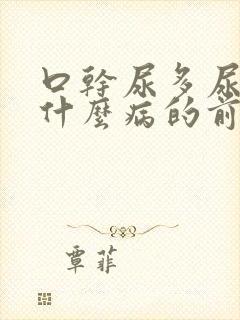 口幹尿多尿
什麼病的前
覃菲